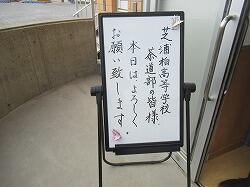 芝浦柏高等学校
茶道部の皆様
本日はよろしく
お願い致します。